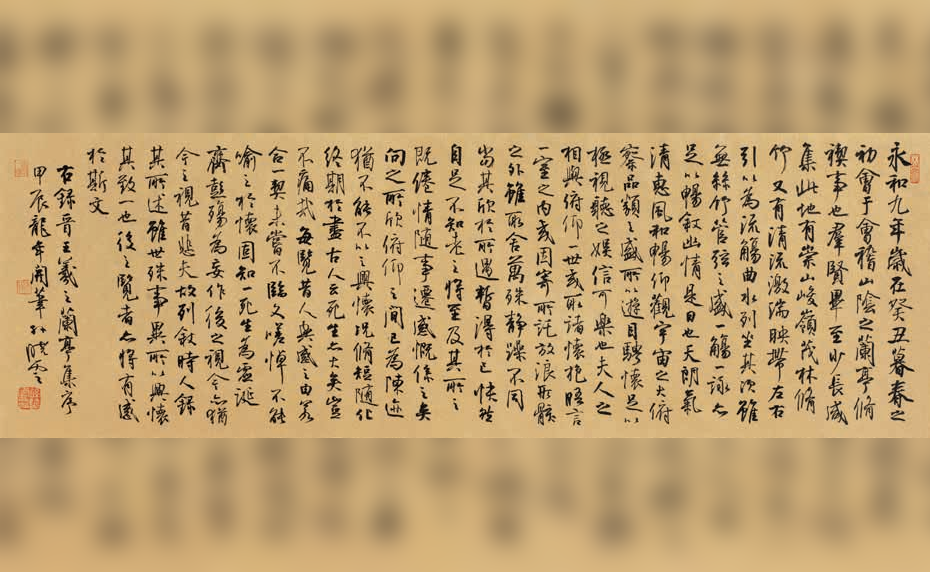 永和九年歲在癸丑暮春之
初會于會稽山陰之蘭亭脩
禊事也羣賢畢至少長咸
集此地有崇山峻嶺茂林脩
竹又有清流激湍映帶左右
引以為流觴曲水列坐其次雖
無絲竹管弦之盛一觴一詠亦
足以暢敘幽情是日也天朗氣
清惠風和暢仰觀宇宙之大俯
察品類之盛所以遊目騁懷足以
極視聽之娛信可樂也夫人之
相與俯仰一世或取諸懷抱晤言
一室之內或因寄所託放浪形骸
之外雖取舍萬殊静躁不同
當其欣於所遇暫得於己快然
自足不知老之將至及其所之
既倦情隨事遷感慨係之矣
向之所欣俯仰之間已為陳迹
猶不能不以之興懷況脩短隨化
終期於盡古人云死生亦大矣豈
不痛哉每覽昔人興感之由若
合一契未嘗不臨文嗟悼不能
喻之於懷固知一死生為虛誕
齊彭殤為妄作後之視今亦猶
今之視昔悲夫故列敘時人錄
其所述雖世殊事異所以興懷
其致一也後之覽者亦將有感
於斯文
右錄晉王羲之蘭亭集序
甲辰龍年開筆孫曉雲